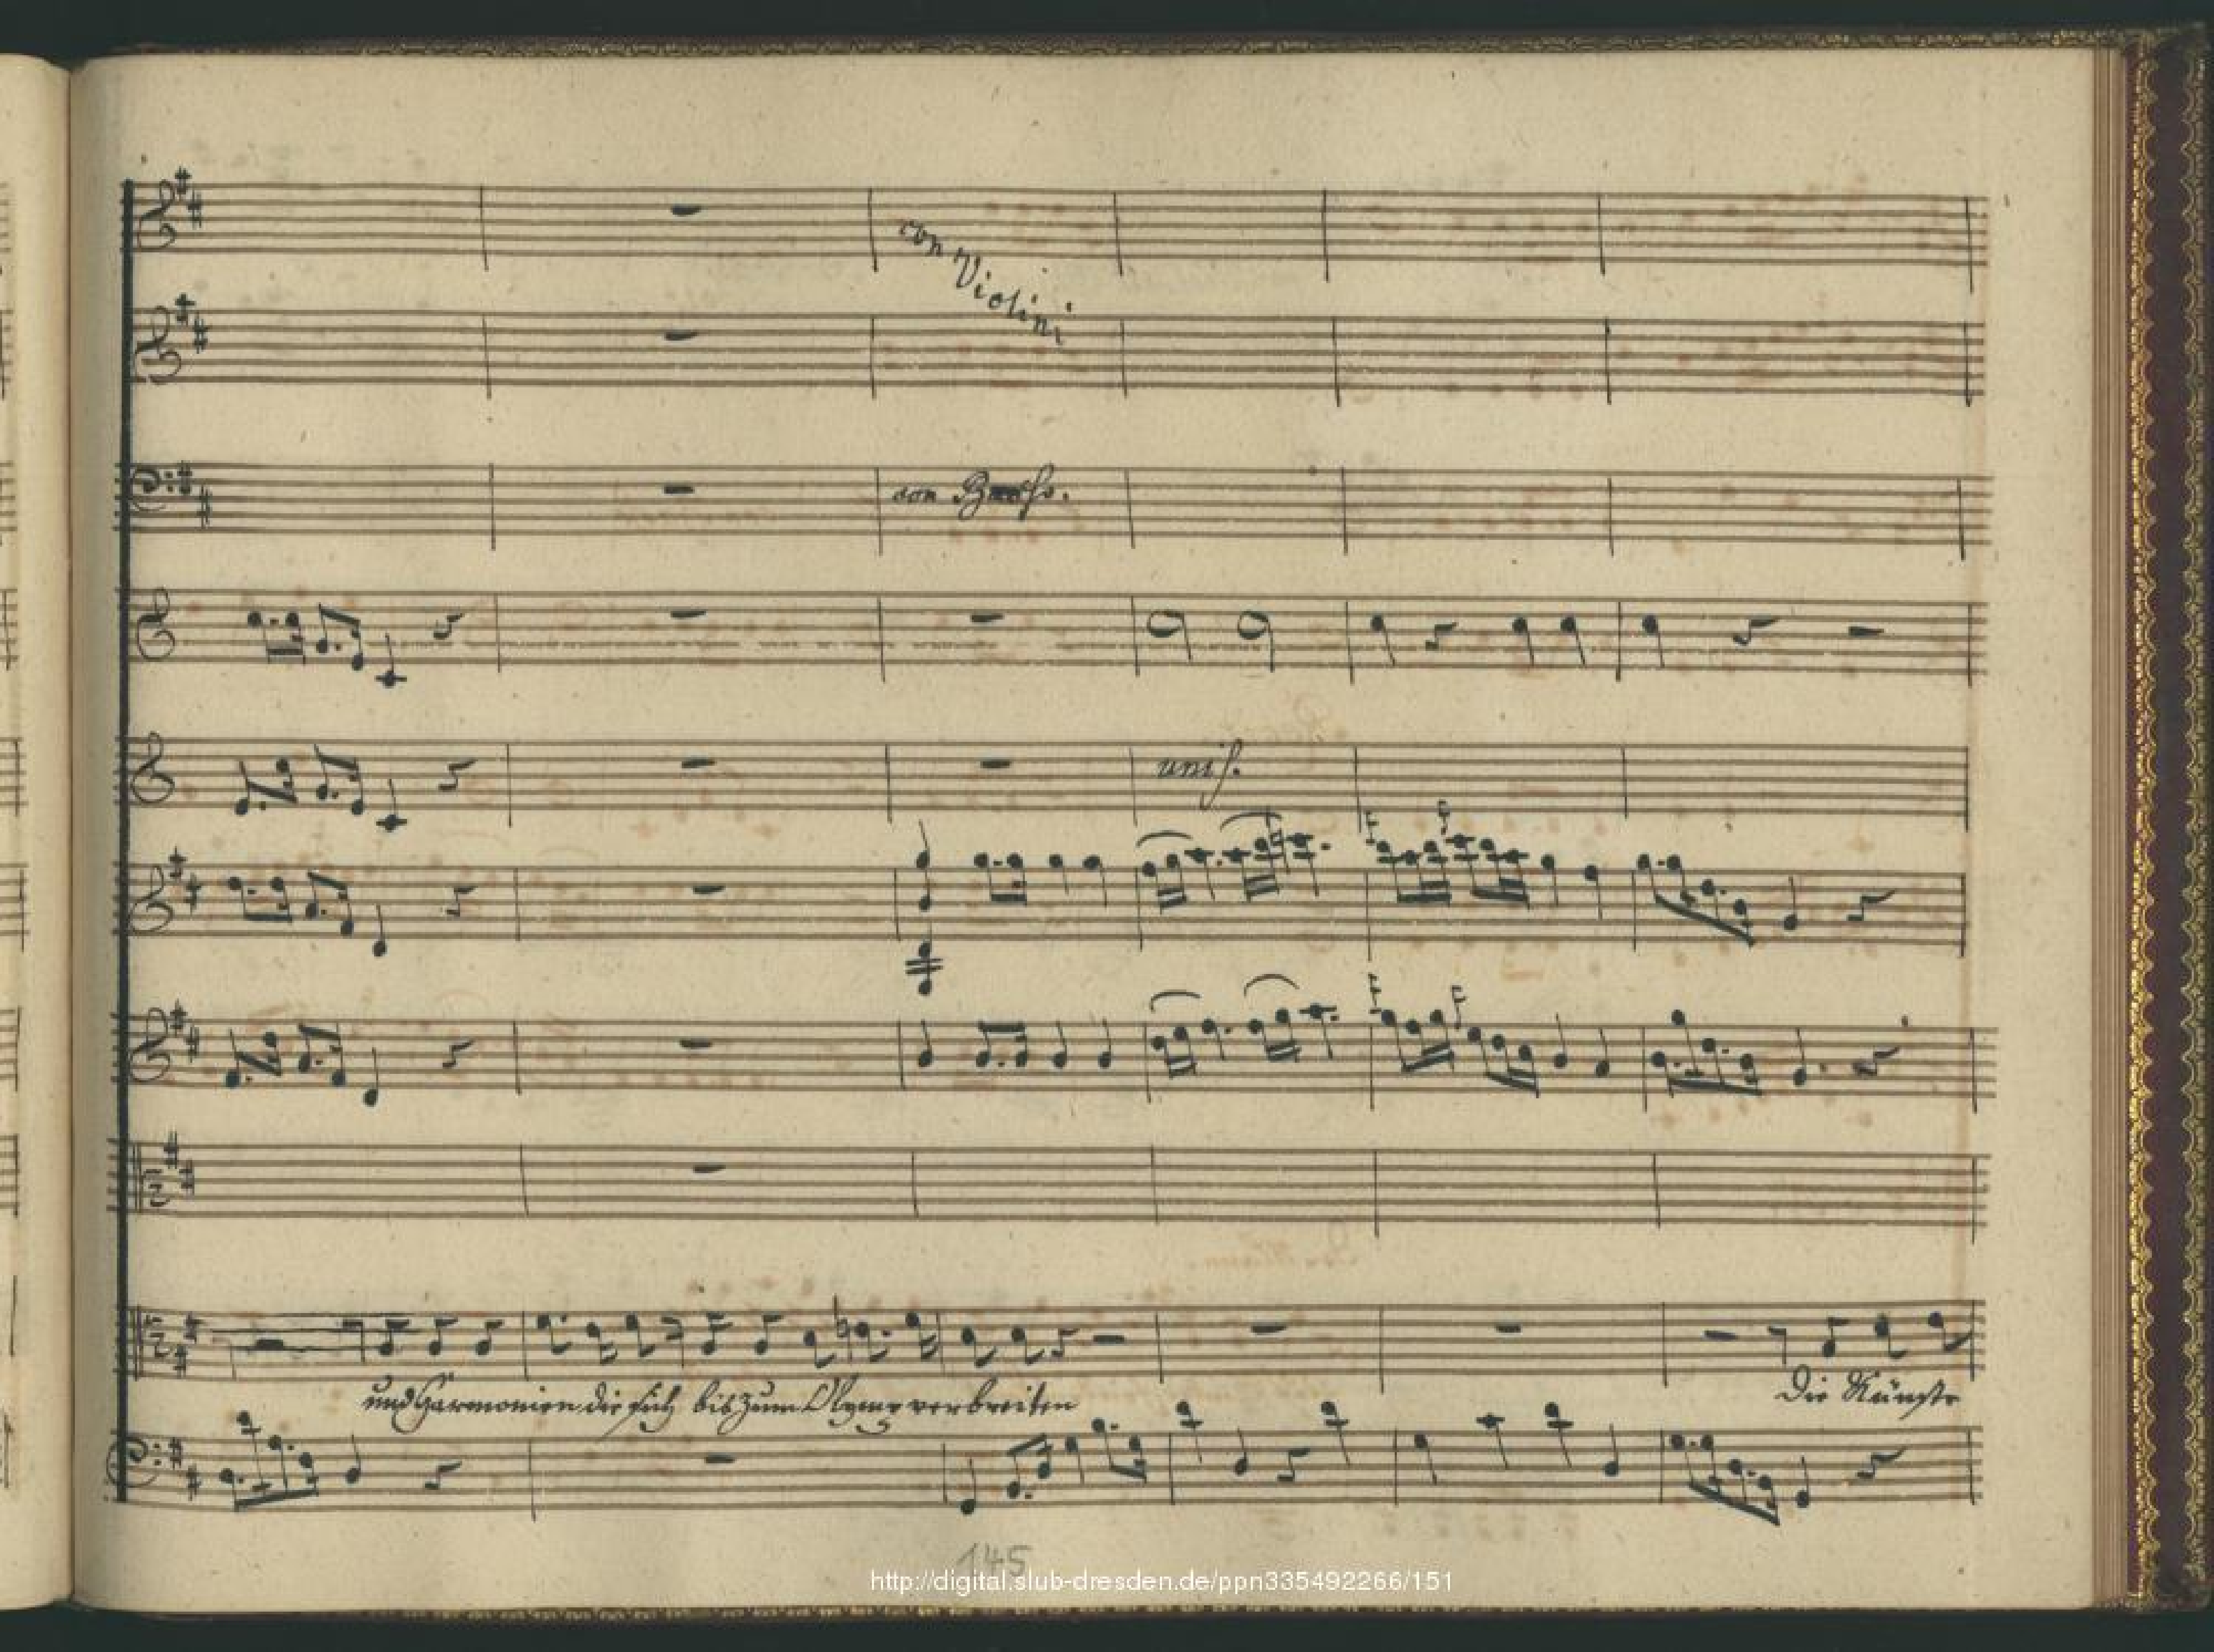 con Violini
con Basso.
unis.
und Harmonien die sich bis zum Olymp verbreiten
Die Künste
145
http://digital.slub-dresden.de/ppn335492266/151